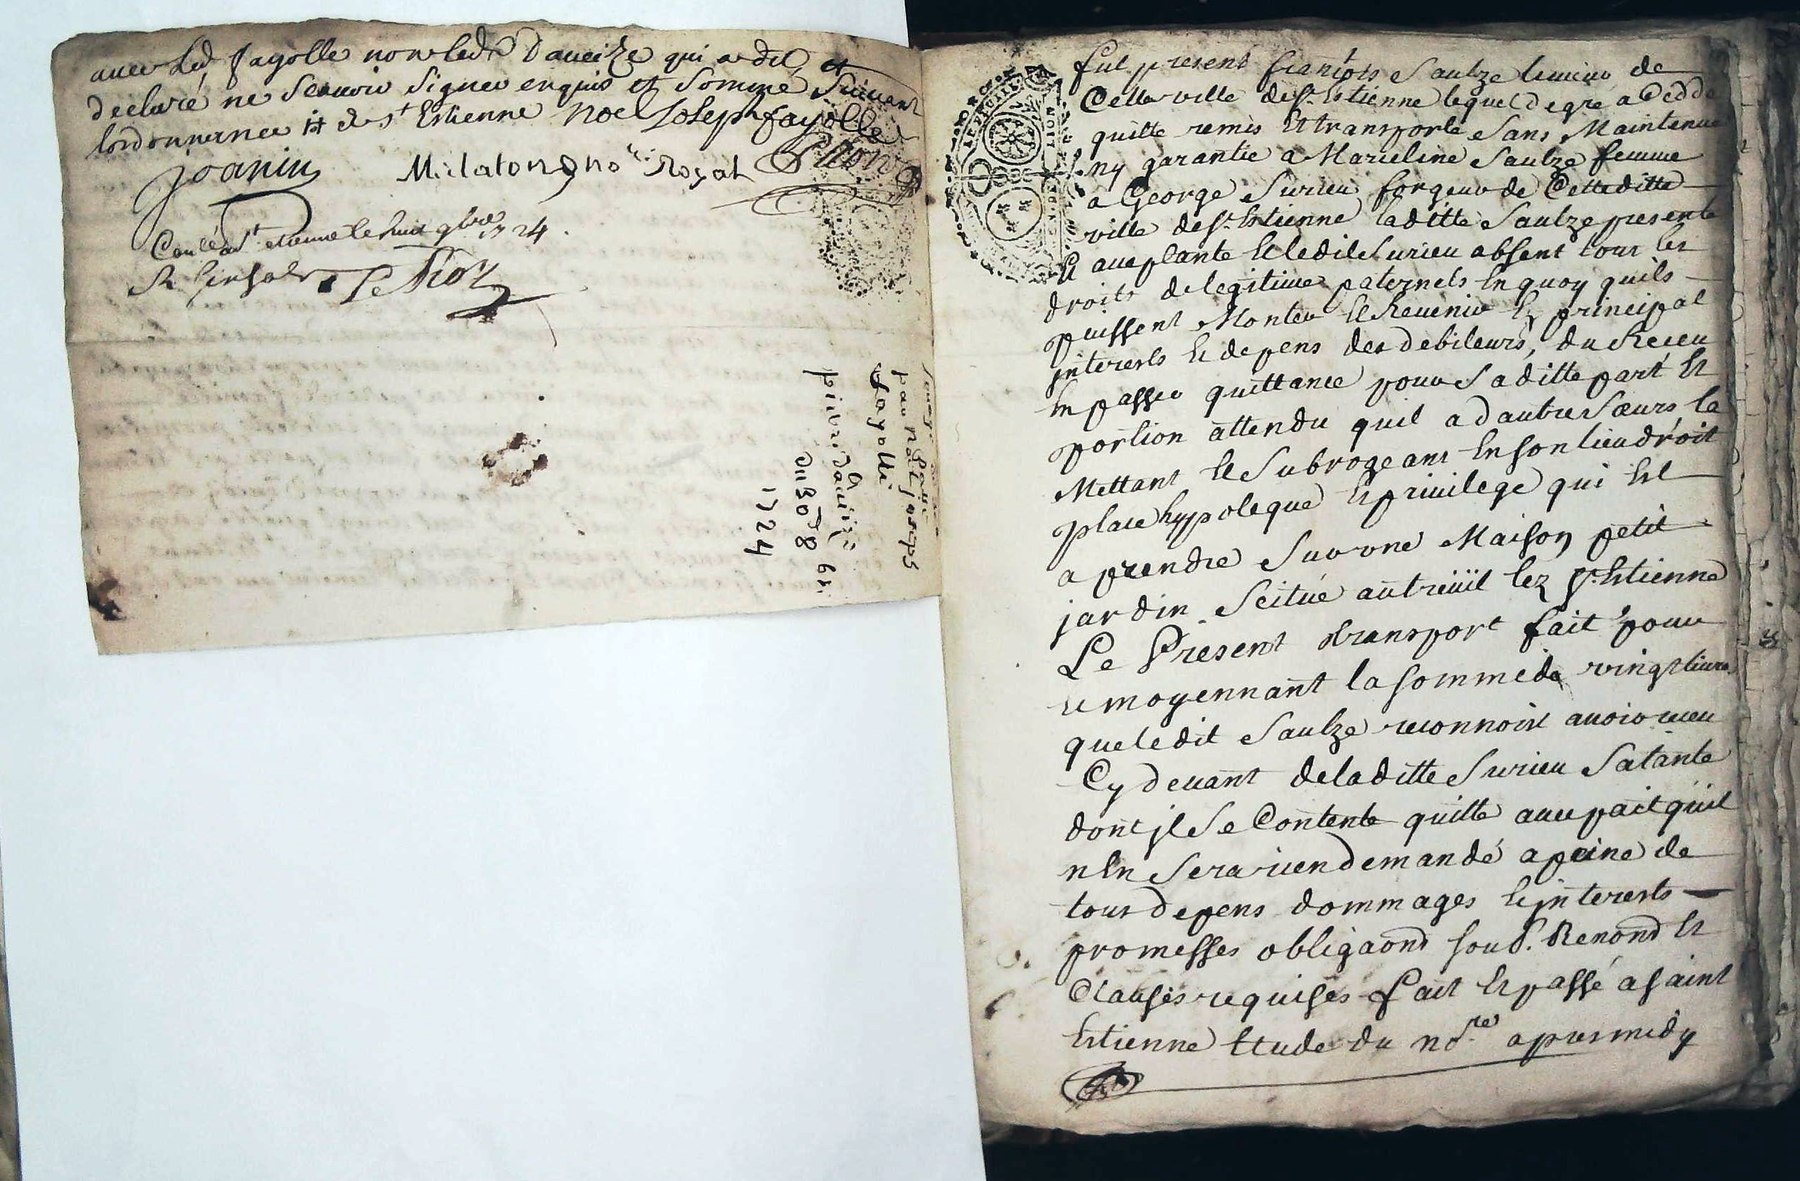 avec led fayolle non led daveize qui a dit et
declaré ne scavoir signer enquis et sommé suivant
lordonnance et de st Estienne noel Joseph fayolle
Joanin Mi no re Royal
a st etienne le huit 9bre 1724
par noel Joseph
fayolle
a
pierre daveize
du 30e 8bre
1724
fut present françois Sautze limeur de
Cette ville de st Estienne lequel de gré a Ceddé
quitté remis Et transporté Sans Maintenue
ny garantie a Marieline Sautze femme
a George Surieu forgeur de Cette ditte
ville de st Estienne laditte Sautze presente
Et acceptante Et ledit Surieu absent tous les
droits de legitimes paternels En quoy quils
puissent Monter Et Revenir En principal
interests Et depens des debiteurs, du Receu
En passer quittance pour Saditte part Et
portion attendu quil a dautres sœurs la
Mettant Et Subrogeant En son lieu droit
place hypoteque Et privilege qui Est
a prendre Sur une Maison petit
jardin Scitué au treüil lez st Estienne
Le Present transport fait pour
Et moyennant la somme de vingt livres
que ledit Sautze reconnoist avoir receu
Cy devant de laditte Surieu Sa tante
dont jl Se Contente quitte avec pact quil
nEn Sera rien demandé a peine de
tous depens dommages Et jnterests
promesses obligaons soub. Renond Et
Clauses requises fait Et passé a saint
Estienne Etude du no.re apres midy